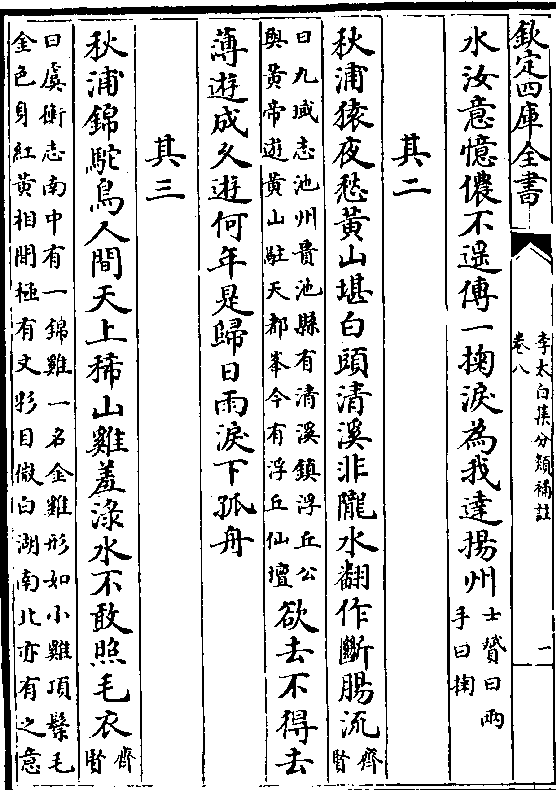 欽定四庫全書
李太白集分類補註
卷八
一
水汝意憶儂不遥傳一掬淚為我達揚州
士贇曰兩
手曰掬
其二
秋浦猿夜愁黃山堪白頭清溪非隴水翻作斷腸流
齊賢
曰九域志池州貴池縣有清溪鎮浮丘公
與黃帝遊黃山駐天都峯今有浮丘仙壇
欲去不得去
薄遊成久遊何年是歸日雨淚下孤舟
其三
秋浦錦駝鳥人間天上稀山雞羞淥水不敢照毛衣
齊賢
曰虞衡志南中有一錦雞一名金雞形如小雞項鬃毛
金色身紅黃相間極有文彩目倣白湖南北亦有之意